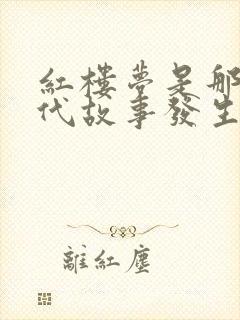 紅樓夢是那
代故事發生
離紅塵